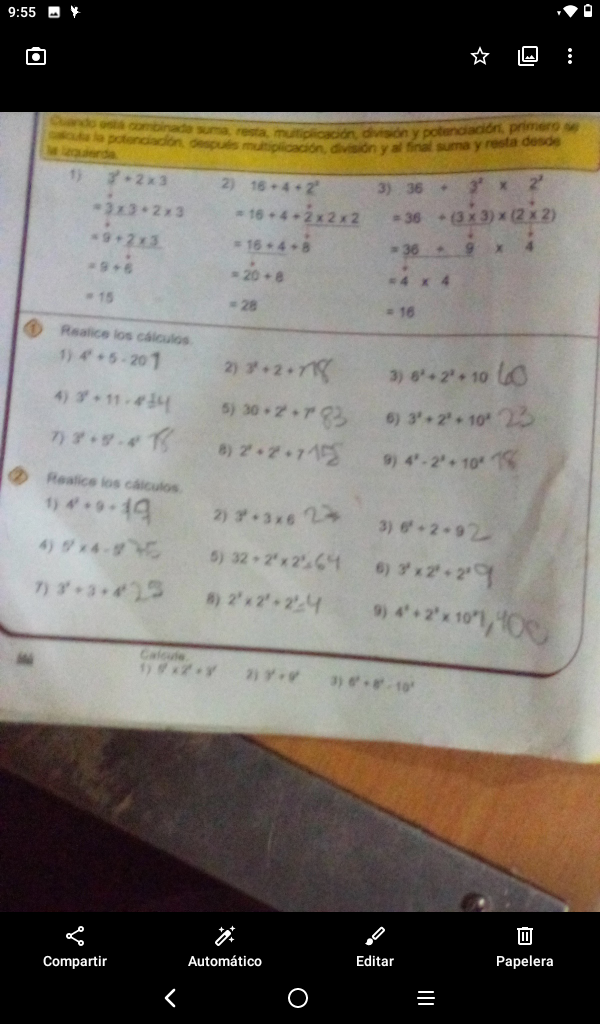 9:55
Cuando está combinada suma, resta, multiplicación, división y potenciación, primero se
calcula la potenciación, después multiplicación, división y al final suma y resta desde
la izquierda.
1) 3² + 2 x 3
= 3 x 3 + 2 x 3
= 9 + 2 x 3
= 9 + 6
= 15
2) 16 + 4 + 2³
= 16 + 4 + 2 x 2 x 2
= 16 + 4 + 8
= 20 + 8
= 28
3) 36 ÷ 3² x 2²
= 36 ÷ (3 x 3) x (2 x 2)
= 36 ÷ 9 x 4
= 4 x 4
= 16
1 Realice los cálculos.
1) 4² + 5 - 20 1
2) 3² + 2 + 7
3) 6² + 2 + 10 60
4) 3² + 11 - 4
5) 30 + 2 + 7² 83
6) 3 + 2 + 10 23
7) 3 + 5² - 4² 18
8) 2 + 2 + 7
9) 4 - 2 + 10 18
2 Realice los cálculos.
1) 4² + 9 ÷ 19
2) 3² + 3 x 6 27
3) 6² ÷ 2 ÷ 9 2
4) 5² x 4 - 5² 75
5) 32 ÷ 2 x 2 = 64
6) 3² x 2 ÷ 2 9
7) 3 ÷ 3 + 4² 25
8) 2 x 2 ÷ 2 = 4
9) 4 ÷ 2 x 10 1,400
Calcule.
1) x 2 + 3
2) 3 + 9
3) 6 + 8 - 10
Compartir
Automático
Editar
Papelera